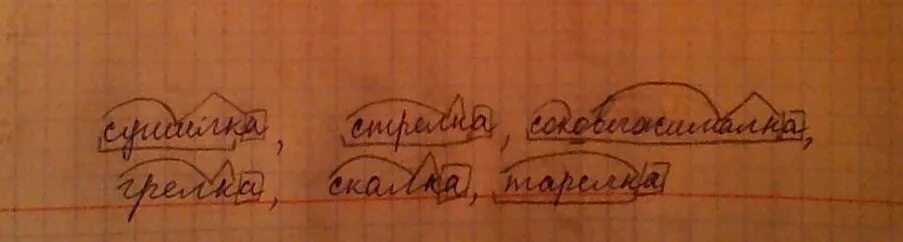 сушилка, стрелка, соковыжималка,
грелка, скалка, тарелка